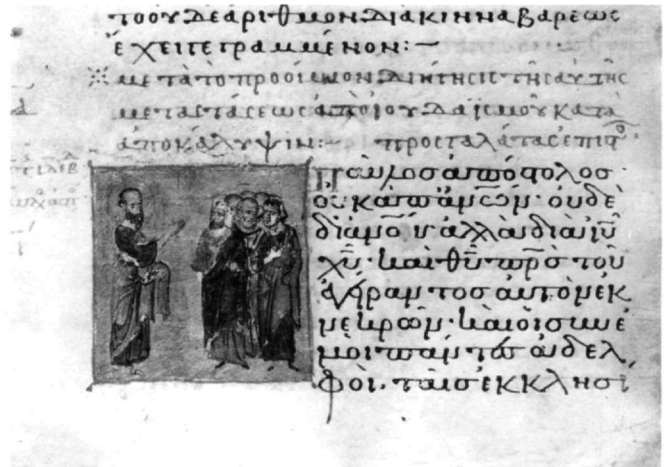 τοου δε αριθμον διακινναβαρεως
ἔχει γεγραμμένον: —
※ μετὰ τὸ προοίμιον διήγησις τῆς αὐτῆς
μεταστάσεως ἀπὸ ἰουδαϊσμοῦ κατὰ
ἀποκάλυψιν: — πρὸς γαλάτας ἐπιστο
παῦλος ἀπόστολος
οὐκ ἀπ ἀνων· οὐδὲ
δι ἀνου ἀλλὰ διὰ ιυ
χυ· καὶ θυ πρσ τοῦ
ἐγείραντος αὐτὸν ἐκ
νεκρῶν· καὶ οἱ σὺν ἐ
μοὶ πάντες ἀδελ
φοὶ· ταῖς ἐκκλησί